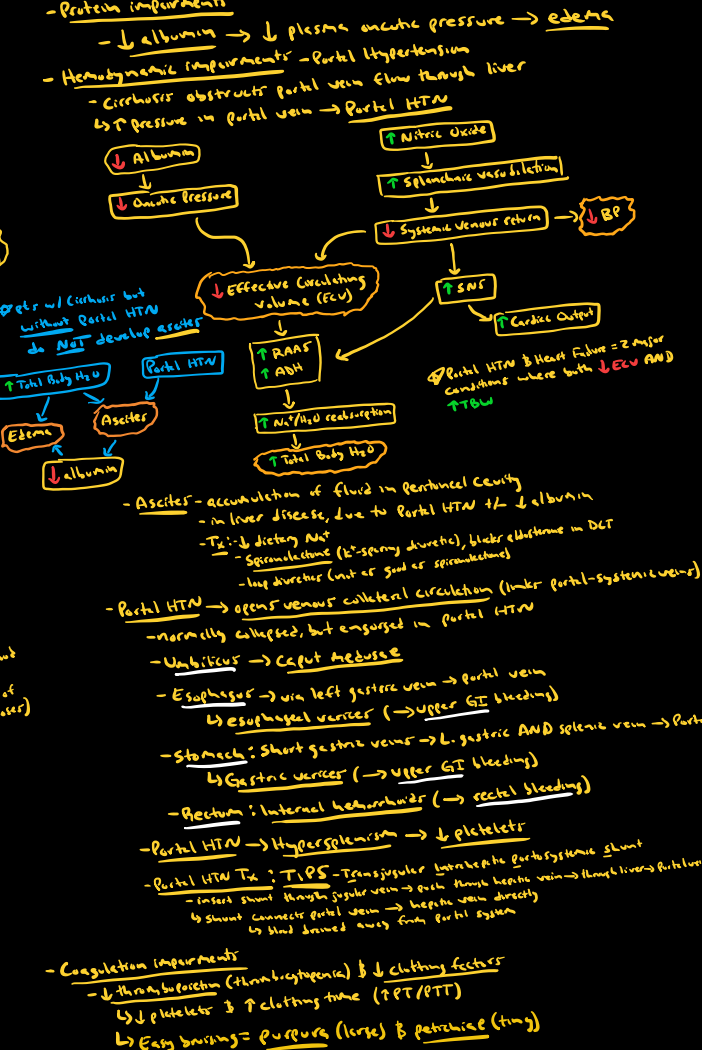 - Protein impairments
- ↓ albumin → ↓ plasma oncotic pressure → edema
- Hemodynamic impairments - Portal Hypertension
- Cirrhosis obstructs portal vein flow through liver
↳ ↑ pressure in portal vein → Portal HTN
↓ Albumin
↓ Oncotic Pressure
↑ Nitric Oxide
↑ Splanchnic vasodilation
↓ Systemic venous return → ↓ BP
↓ Effective Circulating
Volume (ECV)
↑ SNS
↑ Cardiac Output
↑ RAAS
↑ ADH
↑ Na⁺/H₂O reabsorption
↑ Total Body H₂O
pts w/ Cirrhosis but
without Portal HTN
do NOT develop ascites
↑ Total Body H₂O
Portal HTN
Edema
Ascites
↓ albumin
Portal HTN & Heart Failure = 2 major
conditions where both ↓ ECV AND
↑ TBW
- Ascites - accumulation of fluid in peritoneal cavity
- in liver disease, due to Portal HTN +/- ↓ albumin
- Tx: - ↓ dietary Na⁺
- Spironolactone (K⁺-sparing diuretic), blocks aldosterone in DCT
- loop diuretics (not as good as spironolactone)
- Portal HTN → opens venous collateral circulation (links portal-systemic veins)
- normally collapsed, but engorged in portal HTN
- Umbilicus → Caput medusae
- Esophagus → via left gastric vein → portal vein
↳ esophageal varices (→ upper GI bleeding)
- Stomach: Short gastric veins → L. gastric AND splenic vein → Port
↳ Gastric varices (→ upper GI bleeding)
- Rectum: Internal hemorrhoids (→ rectal bleeding)
- Portal HTN → Hypersplenism → ↓ platelets
- Portal HTN Tx: TIPS - Transjugular Intrahepatic Portosystemic Shunt
- insert shunt through jugular vein → push through hepatic vein → through liver → Portal ve
↳ shunt connects portal vein → hepatic vein directly
↳ blood drained away from portal system
of
oser)
- Coagulation impairments
- ↓ thrombopoietin (thrombocytopenia) & ↓ clotting factors
↳ ↓ platelets & ↑ clotting time (↑ PT/PTT)
↳ Easy bruising = purpura (large) & petechiae (tiny)